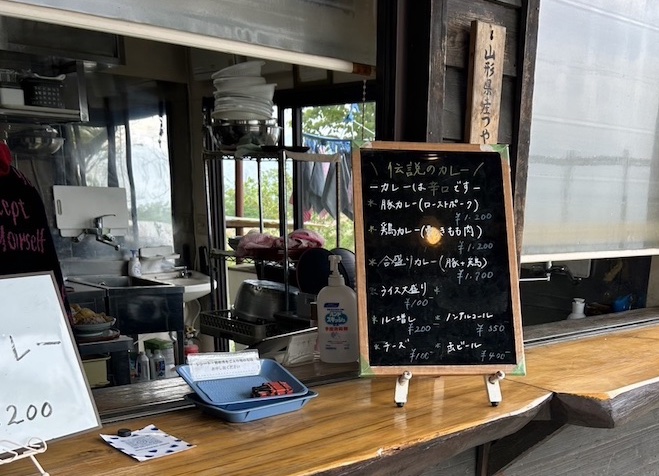 山形県庄
\ 伝説のカレー /
-カレーは辛口です-
* 豚カレー(ローストポーク)
¥1.200
* 鶏カレー( きもも肉)
¥1.200
* 合盛りカレー(豚+鶏)
¥1.700
ライス大盛り
¥100
* ルー増し
¥200
* ノンアルコール
¥350
* チーズ
¥100
* 缶ビール
¥400
cept
Yourself
レー
200